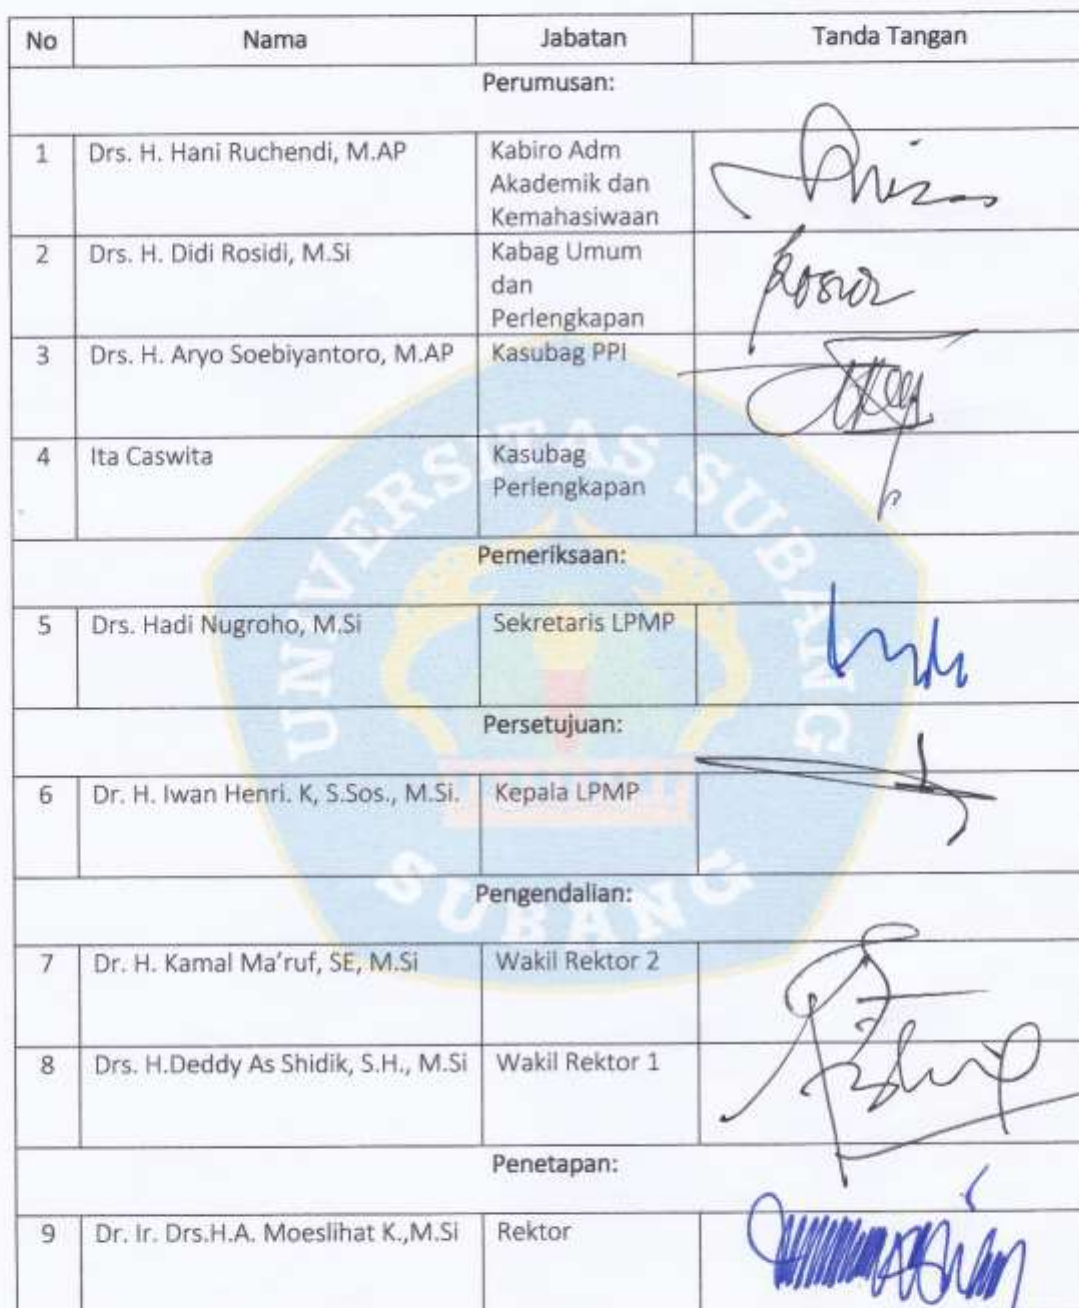 No Nama Jabatan Tanda Tangan
Perumusan:
1 Drs. H. Hani Ruchendi, M.AP Kabiro Adm
Akademik dan
Kemahasiwaan
2 Drs. H. Didi Rosidi, M.Si Kabag Umum
dan
Perlengkapan
3 Drs. H. Aryo Soebiyantoro, M.AP Kasubag PPI
4 Ita Caswita Kasubag
Perlengkapan
Pemeriksaan:
5 Drs. Hadi Nugroho, M.Si Sekretaris LPMP
Persetujuan:
6 Dr. H. Iwan Henri. K, S.Sos., M.Si. Kepala LPMP
Pengendalian:
7 Dr. H. Kamal Ma'ruf, SE, M.Si Wakil Rektor 2
8 Drs. H.Deddy As Shidik, S.H., M.Si Wakil Rektor 1
Penetapan:
9 Dr. Ir. Drs.H.A. Moeslihat K.,M.Si Rektor
UNIVERSITAS SUBANG
SUBANG